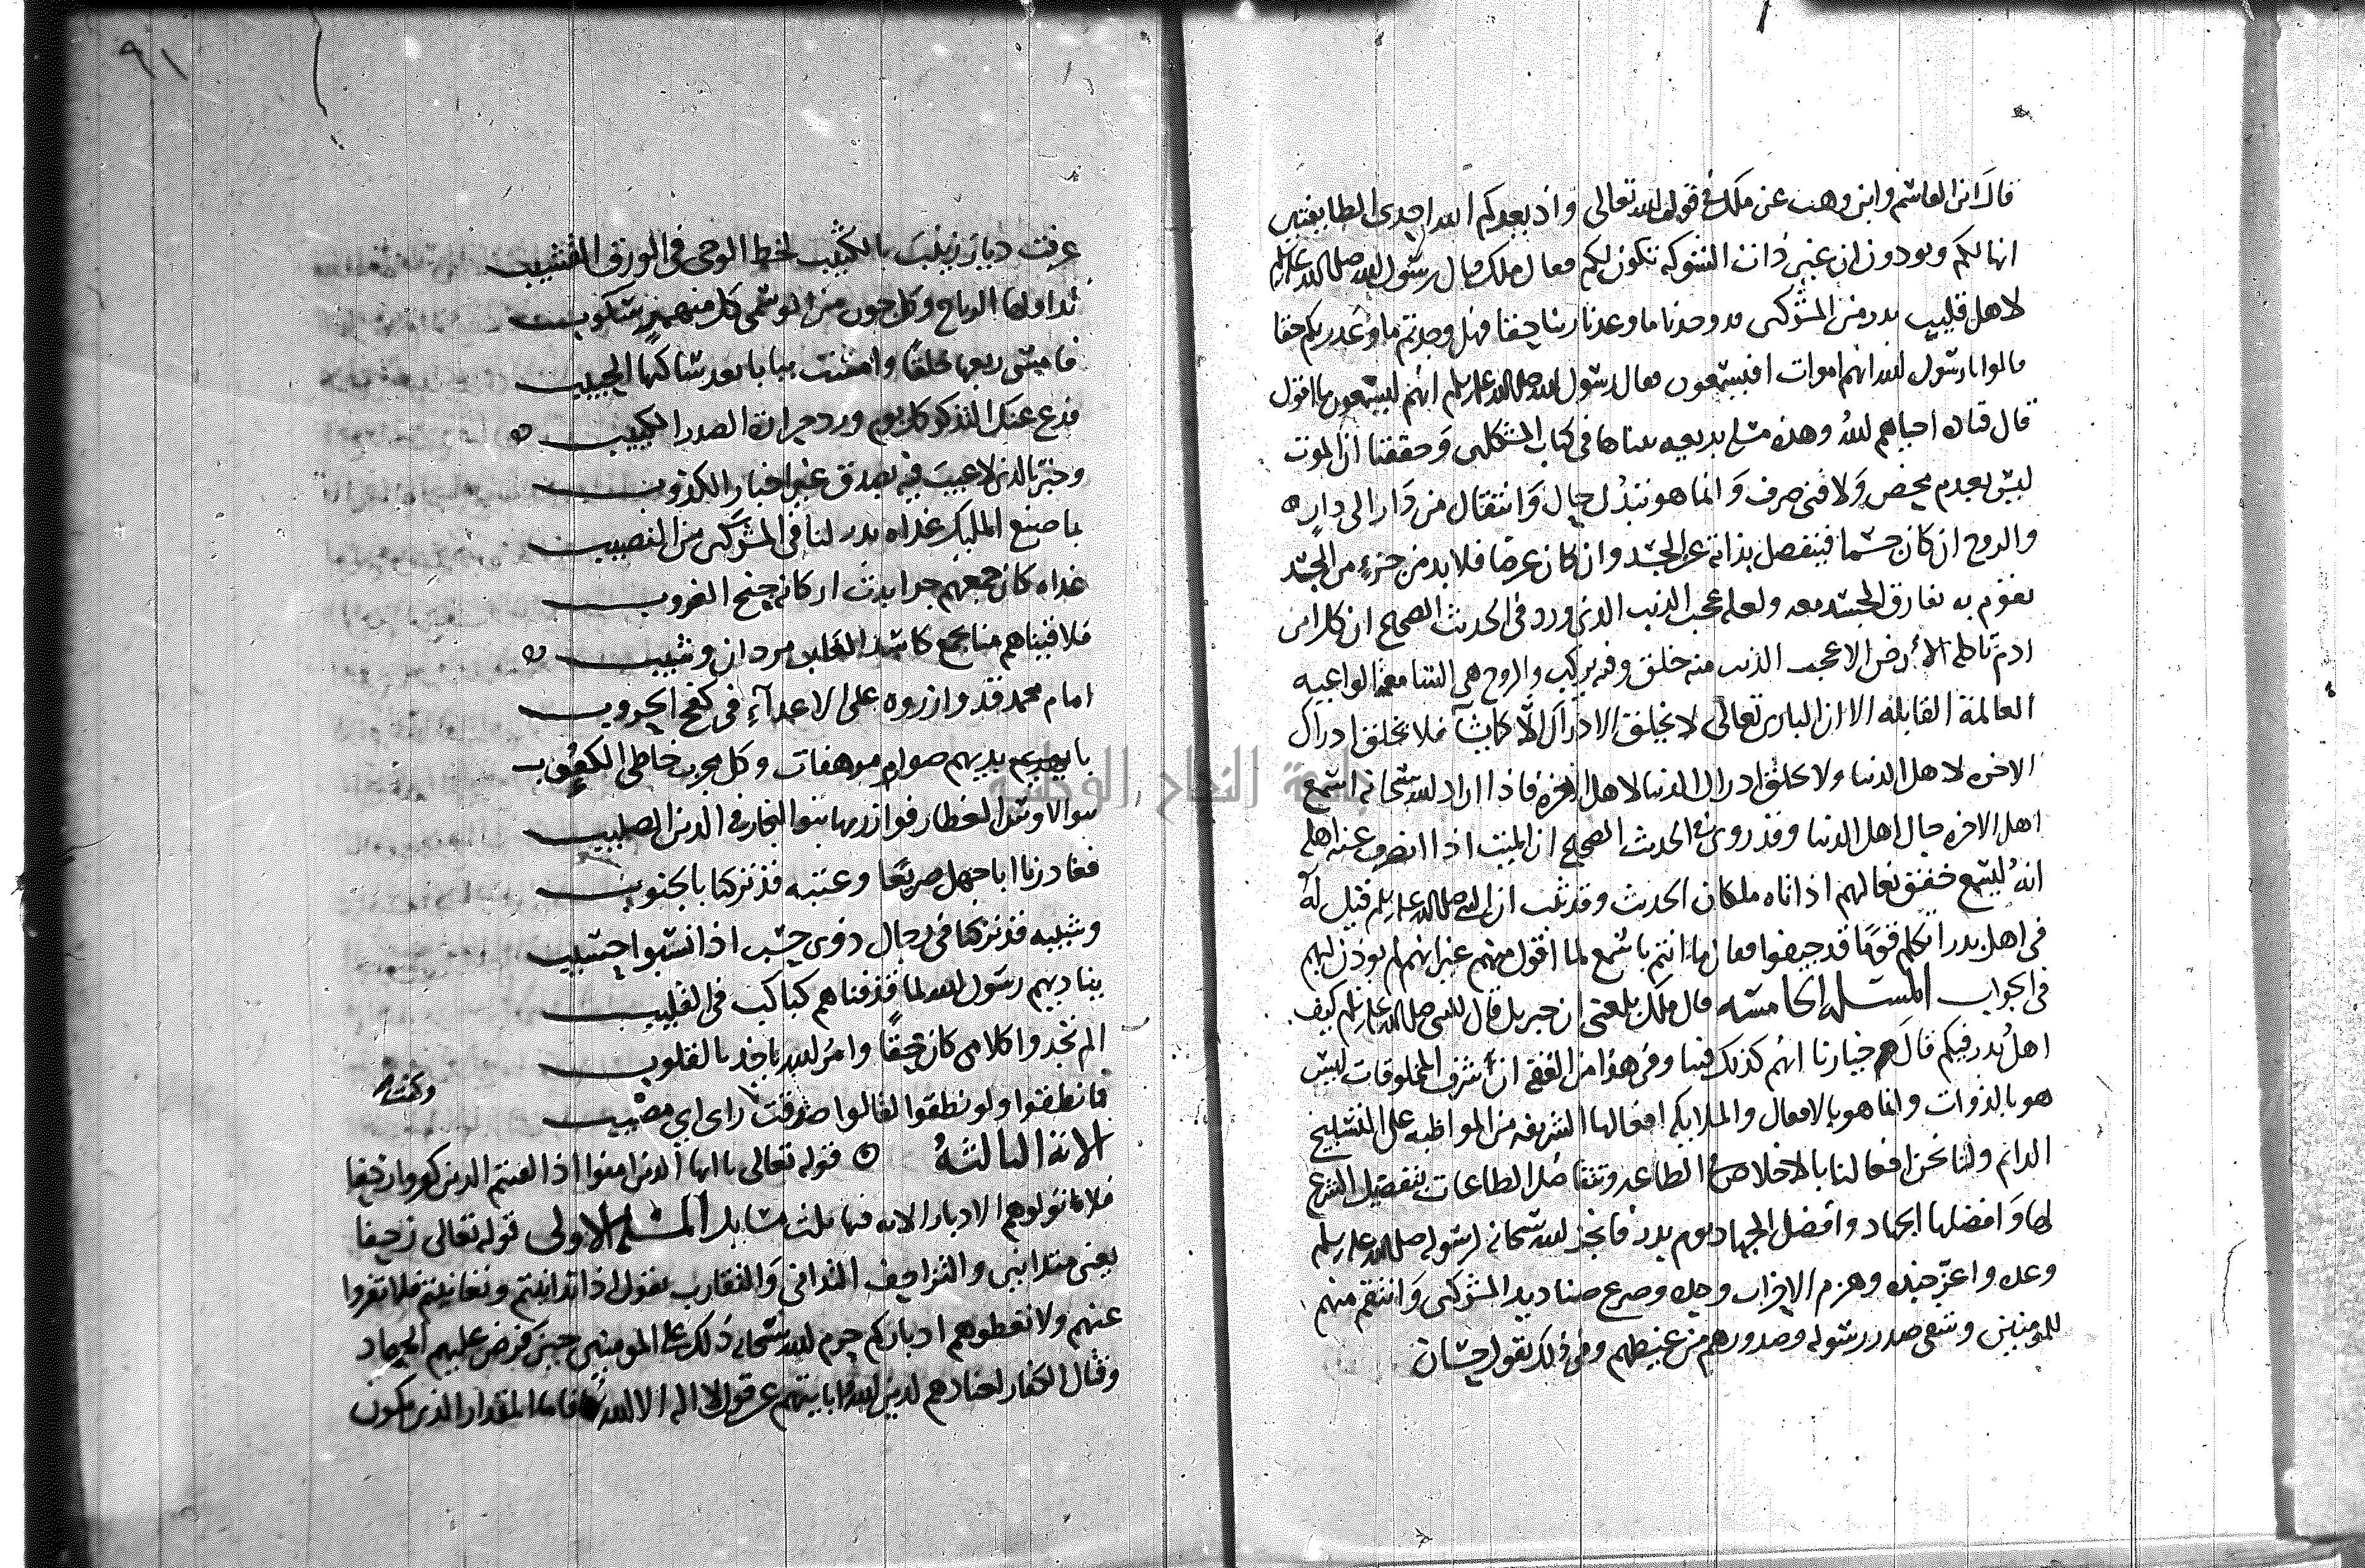 قال ابن القاسم وابن وهب عن ملك في قوله تعالى واذ يعدكم الله احدى الطايفتين
انها لكم وتودون ان غير ذات الشوكة تكون لكم فقال ملك قال رسول الله صلى الله عليه وسلم
لاهل قليب بدر من المشركين قد وجدنا ما وعدنا ربنا حقا فهل وجدتم ما وعد ربكم حقا
قالوا يا رسول الله انهم اموات افيسمعون فقال رسول الله صلى الله عليه وسلم انهم ليسمعون ما اقول
قال قتاده احياهم الله وهذه مسله بديعه بيناها في كتاب المشكلين وحققنا ان الموت
ليس بعدم محض ولا فنى صرف وانما هو تبدل حال وانتقال من دار الى دار
والروح ان كان جسما فينفصل بذاته عن الجسد وان كان عرضا فلا بد من جزء من الجسد
يقوم به يفارق الجسد معه ولعله عجب الذنب الذي ورد في الحديث الصحيح ان كل ابن
ادم تاكله الارض الا عجب الذنب منه خلق وفيه يركب والروح هي السامعة الواعيه
العالمة القابلة الا ان الباري تعالى لا يخلق الادراك الا كما يشا فلا يخلق ادراك
الاخره لاهل الدنيا ولا يخلق ادراك الدنيا لاهل الاخرة فاذا اراد الله سبحانه اسمع
اهل الاخره حال اهل الدنيا وقد روى في الحديث الصحيح ان الميت اذا انصرف عنه اهله
انه ليسمع خفق نعالهم اذ اتاه ملكان الحديث وقد ثبت ان النبي صلى الله عليه وسلم قيل له
في اهل بدر اتكلم قوما قد جيفوا فقال ما انتم باسمع لما اقول منهم غير انهم لم يوذن لهم
في الجواب المسله الخامسه قال ملك بلغني ان جبريل قال للنبي صلى الله عليه وسلم كيف
اهل بدر فيكم قال هم خيارنا انهم كذلك فينا وفي هذا من الفقه ان شرف المخلوقات ليس
هو بالذوات وانما هو بالافعال والملايكه افعالها الشريفه من المواظبه على التسبيح
الدايم ولنا نحن افعالنا بالاخلاص في الطاعه وتتفاضل الطاعات بتفضيل الشرع
لها وافضلها الجهاد وافضل الجهاد يوم بدر فانجز الله سبحانه لرسوله صلى الله عليه وسلم
وعده واعز جنده وهزم الاحزاب وحده وصرع صناديد المشركين وانتقم منهم
للمومنين وشفى صدر رسوله وصدورهم من غيظهم وفي ذلك يقول حسان
٩١
عرفت ديار زينب بالكثيب لخط الوحي في الورق القشيب
تداولها الرياح وكل جون من الوسمى كل منهمر سكوب
فامسى ربعها خلقا وامست يبابا بعد ساكنها الحبيب
فدع عنك التذكر كل يوم ورد حرارة الصدر الكئيب
وخبر بالذي لا عيب فيه بصدق غير اخبار الكذوب
بما صنع المليك غداه بدر لنا في المشركين من النصيب
غداه كان جمعهم حرا بدت اركانه جنح الغروب
فلاقيناهم منا بجمع كاسد الغاب مردان وشيب
امام محمد قد وازروه على الاعداء في لفح الحروب
بايديهم صوارم مرهفات وكل مجرب خاطي الكعوب
بنو الاوس الغطارف وازرتها بنو النجار في الدين الصليب
فغادرنا ابا جهل صريعا وعتبه قد تركنا بالجبوب
وشيبه قد تركنا في رجال ذوي حسب اذا نسبوا حسيب
يناديهم رسول الله لما قذفناهم كباكب في القليب
الم تجدوا كلامي كان حقا وامر الله ياخذ بالقلوب
فما نطقوا ولو نطقوا لقالوا صدقت وكنت ذا راى مصيب
الاية الثالثة قوله تعالى يا ايها الذين امنوا اذا لقيتم الذين كفروا زحفا
فلا تولوهم الادبار الايه فيها ثلث مسايل المسله الاولى قوله تعالى زحفا
يعني متدانين والتزاحف التداني والتقارب يقول اذا تدانيتم وتعاينتم فلا تفروا
عنهم ولا تعطوهم ادباركم حرم الله سبحانه ذلك على المومنين حين فرض عليهم الجهاد
وقتال الكفار لعنادهم لدين الله وابايتهم عن قول لا اله الا الله فاما المقدار الذي يكون